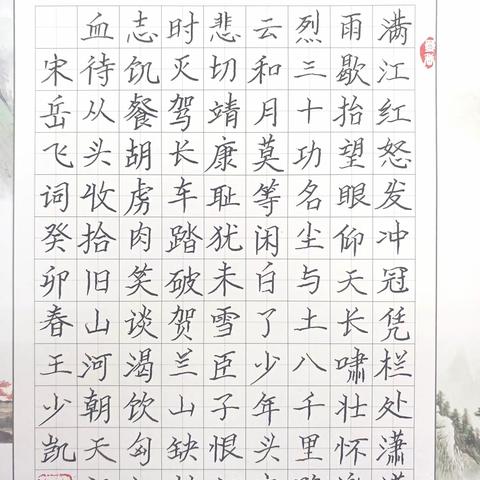 满江红怒发冲冠凭栏处潇
雨歇抬望眼仰天长啸壮怀
烈三十功名尘与土八千里
云和月莫等闲白了少年头
悲切靖康耻犹未雪臣子恨
时灭驾长车踏破贺兰山缺
志饥餐胡虏肉笑谈渴饮匈
血待从头收拾旧山河朝天
宋岳飞词癸卯春王少凯